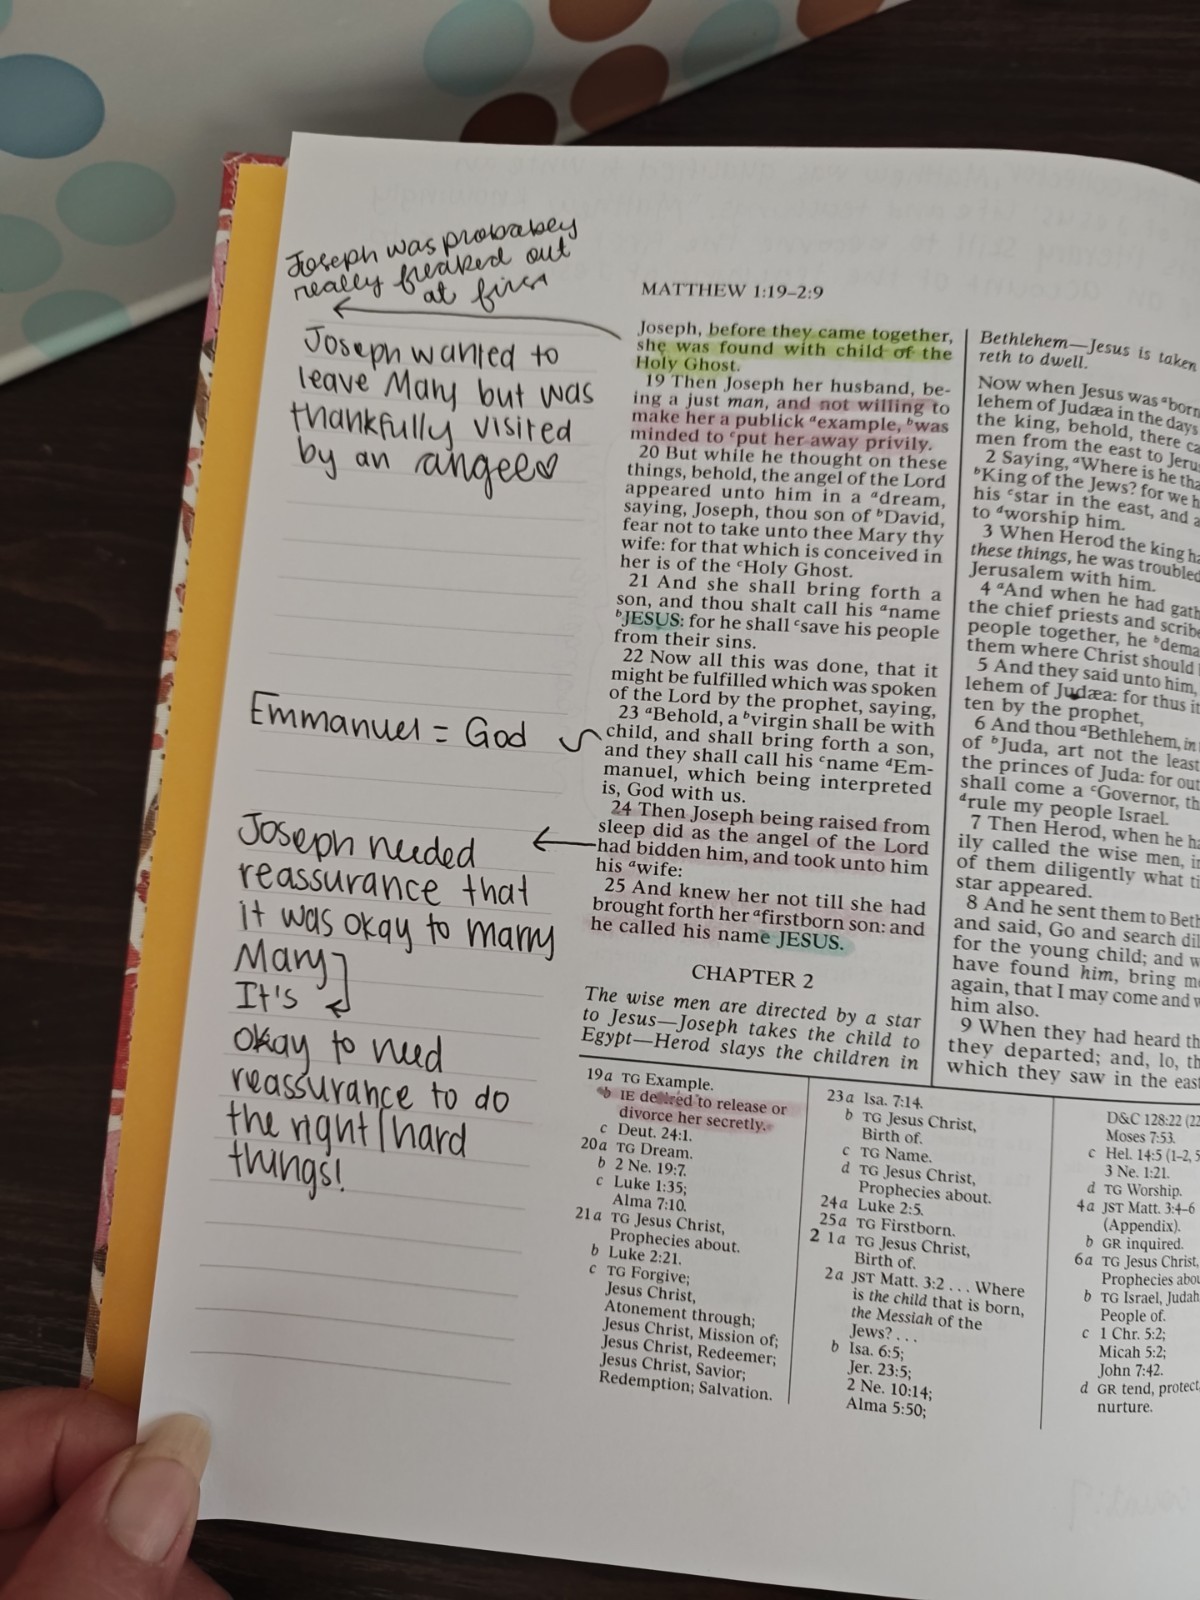 Joseph was probabey
really freaked out
at first
Joseph wanted to
leave Mary but was
thankfully visited
by an angel
Emmanuel = God
Joseph needed
reassurance that
it was okay to marry
Mary
It's
okay to need
reassurance to do
the right/hard
things!
MATTHEW 1:19–2:9
Joseph, before they came together,
she was found with child of the
Holy Ghost.
19 Then Joseph her husband, be-
ing a just man, and not willing to
make her a publick aexample, bwas
minded to cput her away privily.
20 But while he thought on these
things, behold, the angel of the Lord
appeared unto him in a adream,
saying, Joseph, thou son of bDavid,
fear not to take unto thee Mary thy
wife: for that which is conceived in
her is of the cHoly Ghost.
21 And she shall bring forth a
son, and thou shalt call his aname
bJESUS: for he shall csave his people
from their sins.
22 Now all this was done, that it
might be fulfilled which was spoken
of the Lord by the prophet, saying,
23 aBehold, a bvirgin shall be with
child, and shall bring forth a son,
and they shall call his cname dEm-
manuel, which being interpreted
is, God with us.
24 Then Joseph being raised from
sleep did as the angel of the Lord
had bidden him, and took unto him
his awife:
25 And knew her not till she had
brought forth her afirstborn son: and
he called his name JESUS.
CHAPTER 2
The wise men are directed by a star
to Jesus—Joseph takes the child to
Egypt—Herod slays the children in
Bethlehem—Jesus is taken
reth to dwell.
Now when Jesus was aborn
lehem of Judæa in the days
the king, behold, there
men from the east to
2 Saying, aWhere is he
bKing of the Jews? for we
his cstar in the east, and
to dworship him.
3 When Herod the king
these things, he was troubled
Jerusalem with him.
4 aAnd when he had
the chief priests and
people together, he
them where Christ should
5 And they said unto him,
lehem of Judæa: for thus it
ten by the prophet,
6 And thou aBethlehem, in
of bJuda, art not the least
the princes of Juda: for out
shall come a cGovernor,
drule my people Israel.
7 Then Herod, when he
ily called the wise men,
of them diligently what
star appeared.
8 And he sent them to
and said, Go and search
for the young child; and
have found him, bring
again, that I may come and
him also.
9 When they had heard
they departed; and, lo,
which they saw in the east
19a TG Example.
b IE desired to release or
divorce her secretly.
c Deut. 24:1.
20a TG Dream.
b 2 Ne. 19:7.
c Luke 1:35;
Alma 7:10.
21a TG Jesus Christ,
Prophecies about.
b Luke 2:21.
c TG Forgive;
Jesus Christ,
Atonement through;
Jesus Christ, Mission of;
Jesus Christ, Redeemer;
Jesus Christ, Savior;
Redemption; Salvation.
23a Isa. 7:14.
b TG Jesus Christ,
Birth of.
c TG Name.
d TG Jesus Christ,
Prophecies about.
24a Luke 2:5.
25a TG Firstborn.
2 1a TG Jesus Christ,
Birth of.
2a JST Matt. 3:2 . . . Where
is the child that is born,
the Messiah of the
Jews? . . .
b Isa. 6:5;
Jer. 23:5;
2 Ne. 10:14;
Alma 5:50;
D&C 128:22 (22
Moses 7:53.
c Hel. 14:5 (1–2, 5
3 Ne. 1:21.
d TG Worship.
4a JST Matt. 3:4–6
(Appendix).
b GR inquired.
6a TG Jesus Christ,
Prophecies
b TG Israel, Judah
People of.
c 1 Chr. 5:2;
Micah 5:2;
John 7:42.
d GR tend, protect
nurture.